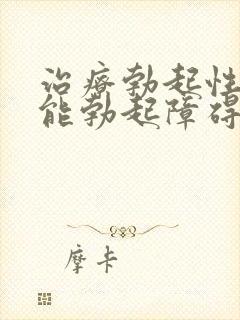 治療勃起性
能勃起障碍
摩卡